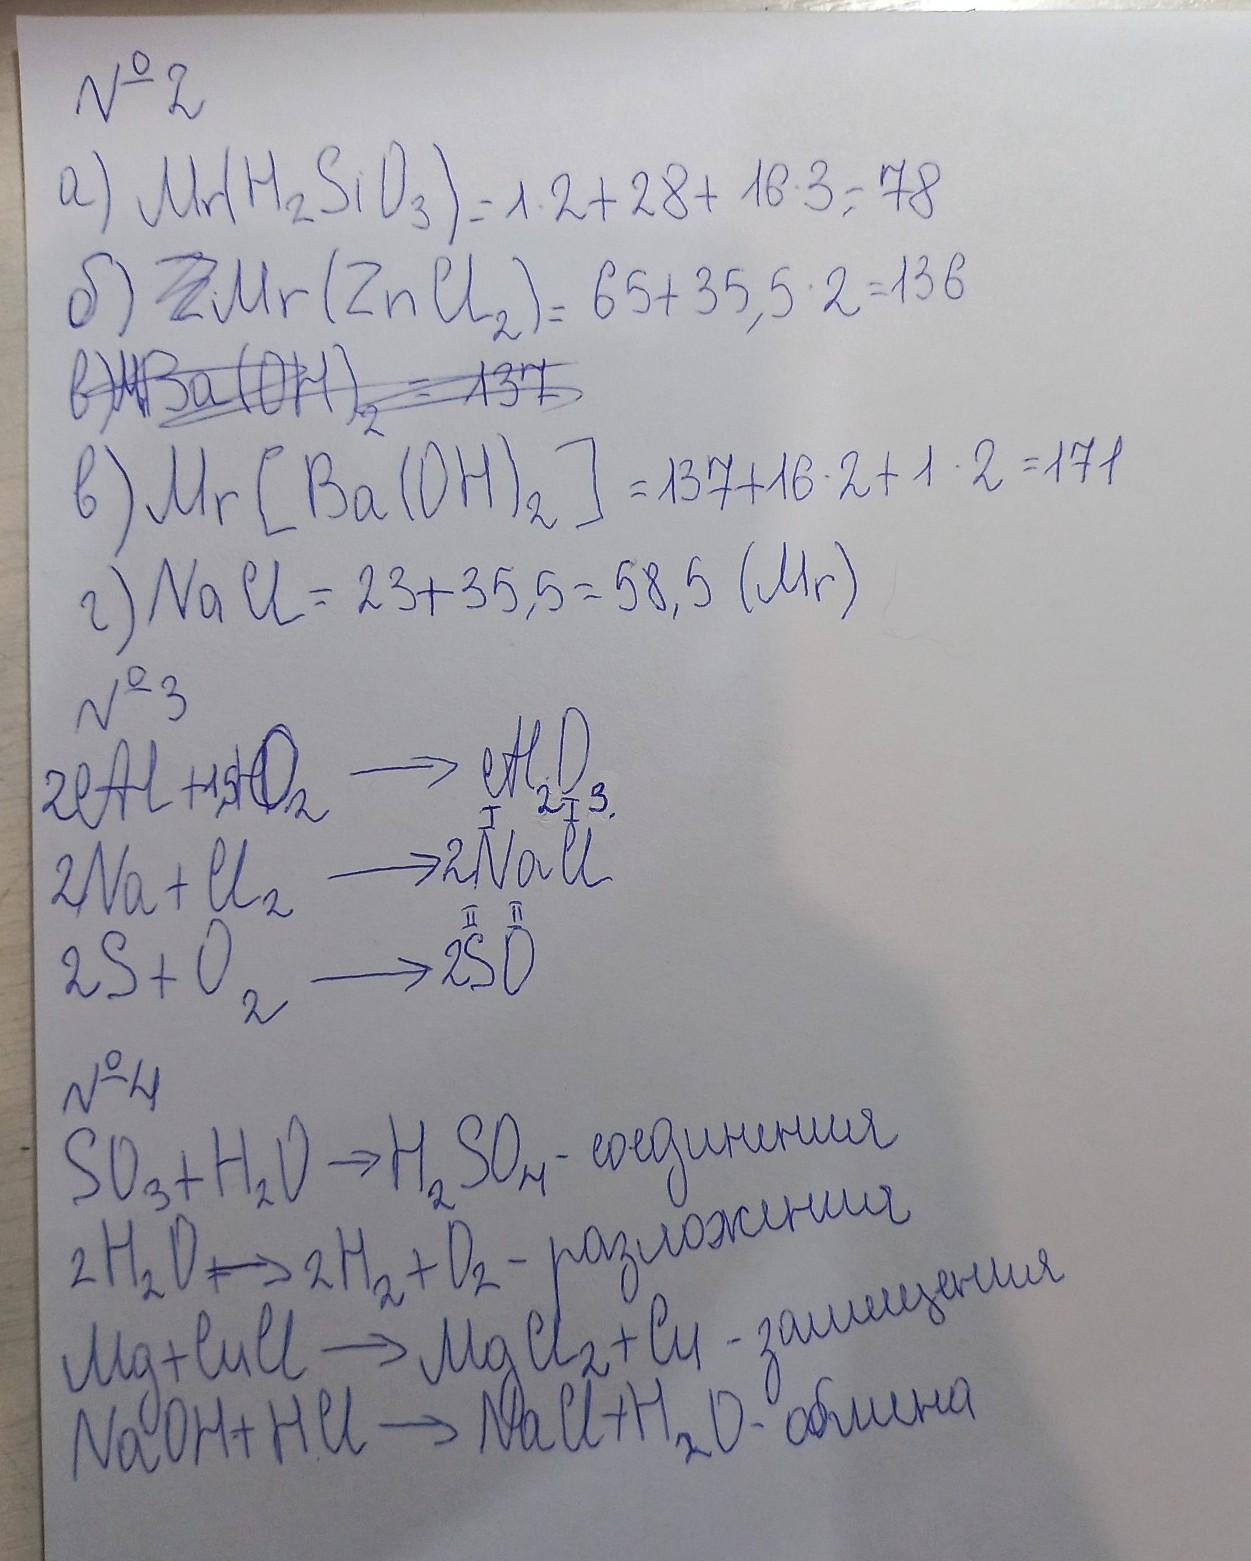 №2
а) Mr(H₂SiO₃)=1·2+28+16·3=78
б) Mr(ZnCl₂)=65+35,5·2=136
в) Ba(OH)₂=137
в) Mr[Ba(OH)₂]=137+16·2+1·2=171
г) NaCl=23+35,5=58,5 (Mr)
№3
2Al+1,5O₂→Al₂O₃.
I I
2Na+Cl₂→2NaCl
II II
2S+O₂→2SO
№4
SO₃+H₂O→H₂SO₄-соединения
2H₂O→2H₂+O₂-разложения
Mg+CuCl→MgCl₂+Cu-замещения
NaOH+HCl→NaCl+H₂O-обмена